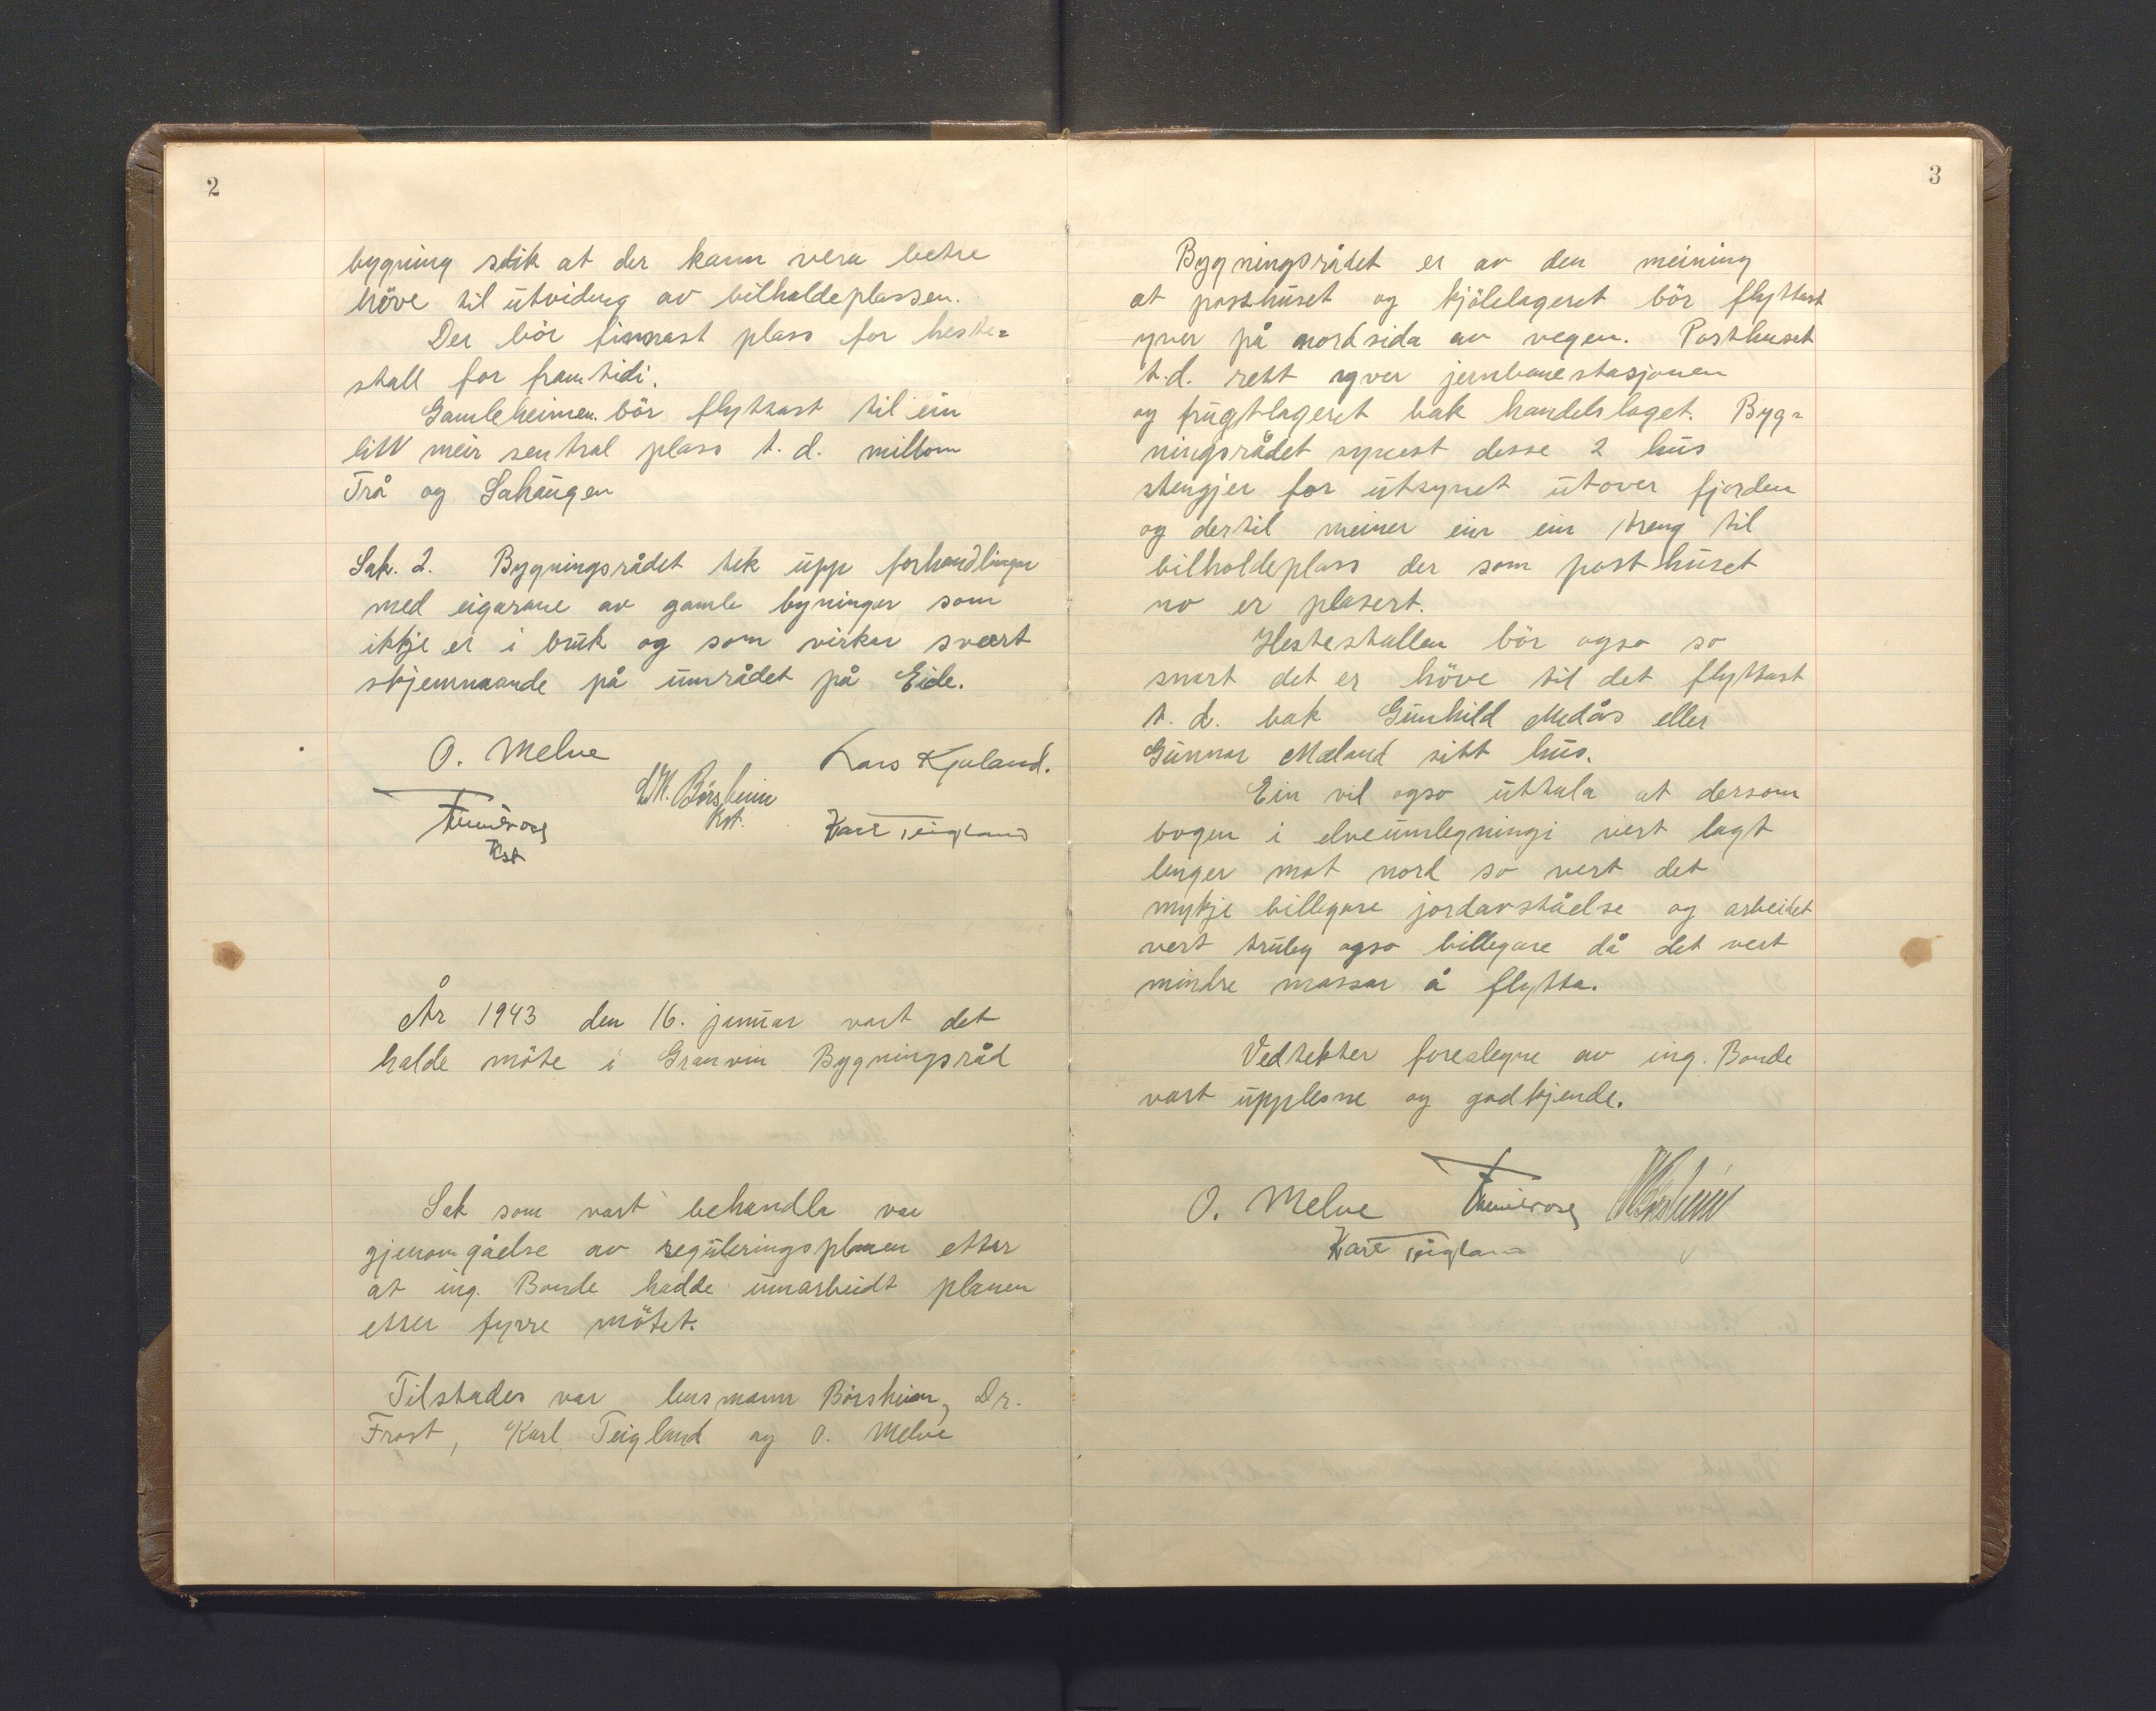 2
bygning slik at der kann vera betre
höve til utviding av bilhaldeplassen.
Der bör finnast plass for heste=
stall for framtidi.
Gamleheimen bör flyttast til ein
litt meir sentral plass t. d. millom
Trå og Sahaugen
Sak. 2. Bygningsrådet tek upp forhandlingar
med eigarane av gamle bygningar som
ikkje er i bruk og som virkar svært
skjemmaande på området på Eide.
O. Melve
Lars Kjerland.
Börsheim
Karl Teigland
År 1943 den 16. januar vart det
halde möte i Granvin Bygningsråd
Sak som vart behandla var
gjenomgåelse av reguleringsplanen etter
at ing. Bonde hadde umarbeidt planen
etter fyrre mötet.
Tilstades var lensmann Börsheim, Dr.
Frost, Karl Teigland og O. Melve
3
Bygningsrådet er av den meining
at posthuset og kjölelageret bör flyttast
yver på nordsida av vegen. Posthuset
t.d. rett yver jernbanestasjonen
og frugtlageret bak handelslaget. Byg=
ningsrådet synest desse 2 hus
stengjer for utsynet utover fjorden
og dertil meiner ein ein treng til
bilholdeplass der som posthuset
no er plasert.
Hestestallen bör ogso so
snart det er höve til det flyttast
t. d. bak Gunhild Medås eller
Gunnar Mæland sitt hus.
Ein vil ogso uttala at dersom
bogen i elveumlegningi vert lagt
lenger mot nord so vert det
mykje billegare jordavståelse og arbeidet
vert truleg ogso billegare då det vert
mindre massar å flytta.
Vedtekter foreslegne av ing. Bonde
vart upplesne og godkjende.
O. Melve
Börsheim
Karl Teigland